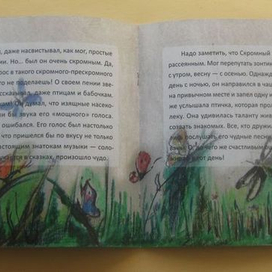 , даже насвистывал, как мог, простые
ки. Но... был он очень скромным. Да,
рос в такого скромного-прескромного
не поделаешь! О своем пении
рассказывал, даже птицам и бабочкам.
Он думал, что изящные
бы звука его «мощного» голоса.
ошибался. Его голос был настолько
что пришелся бы по вкусу не только
настоящим знатокам музыки —
в сказках, произошло чудо.
Надо заметить, что Скромный
рассеянным. Мог перепутать зонтик
с утром, весну — с осенью. Однажды
день с ночью, он направился в
на привычном месте и запел одну и
же услышала птичка, которая
леку. Она удивилась таланту
созвать знакомых. Все, кто
послушать его чудные песни
же счастливым
этот день!